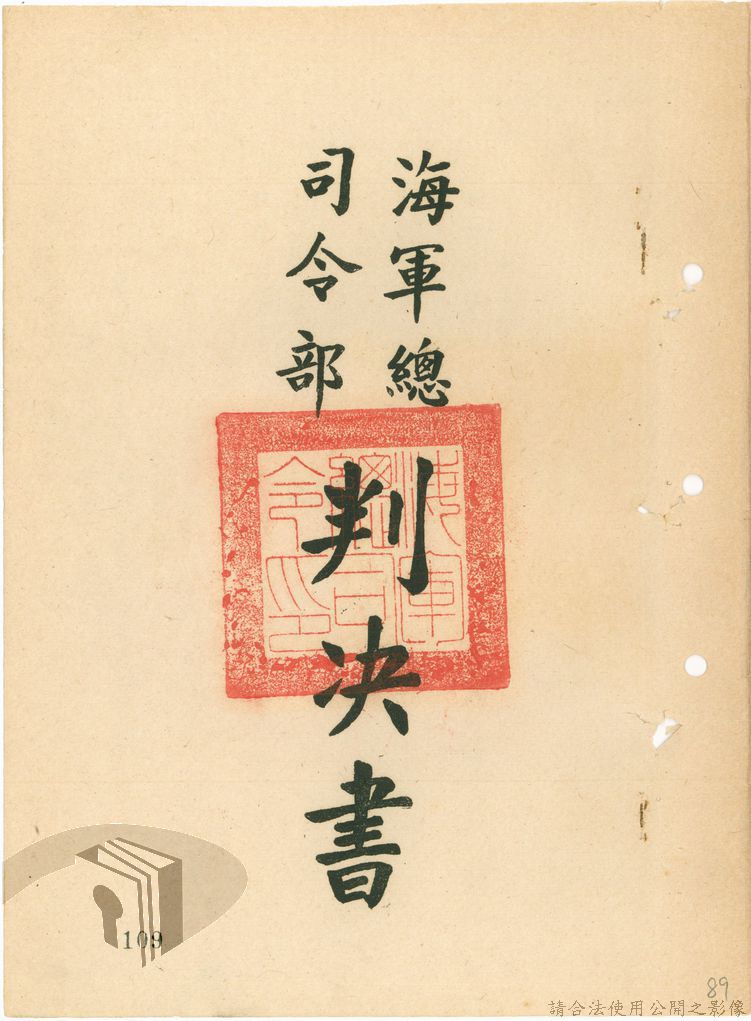 海軍總
司令部
判決書
海軍
總司
令印
109
89
請合法使用公開之影像